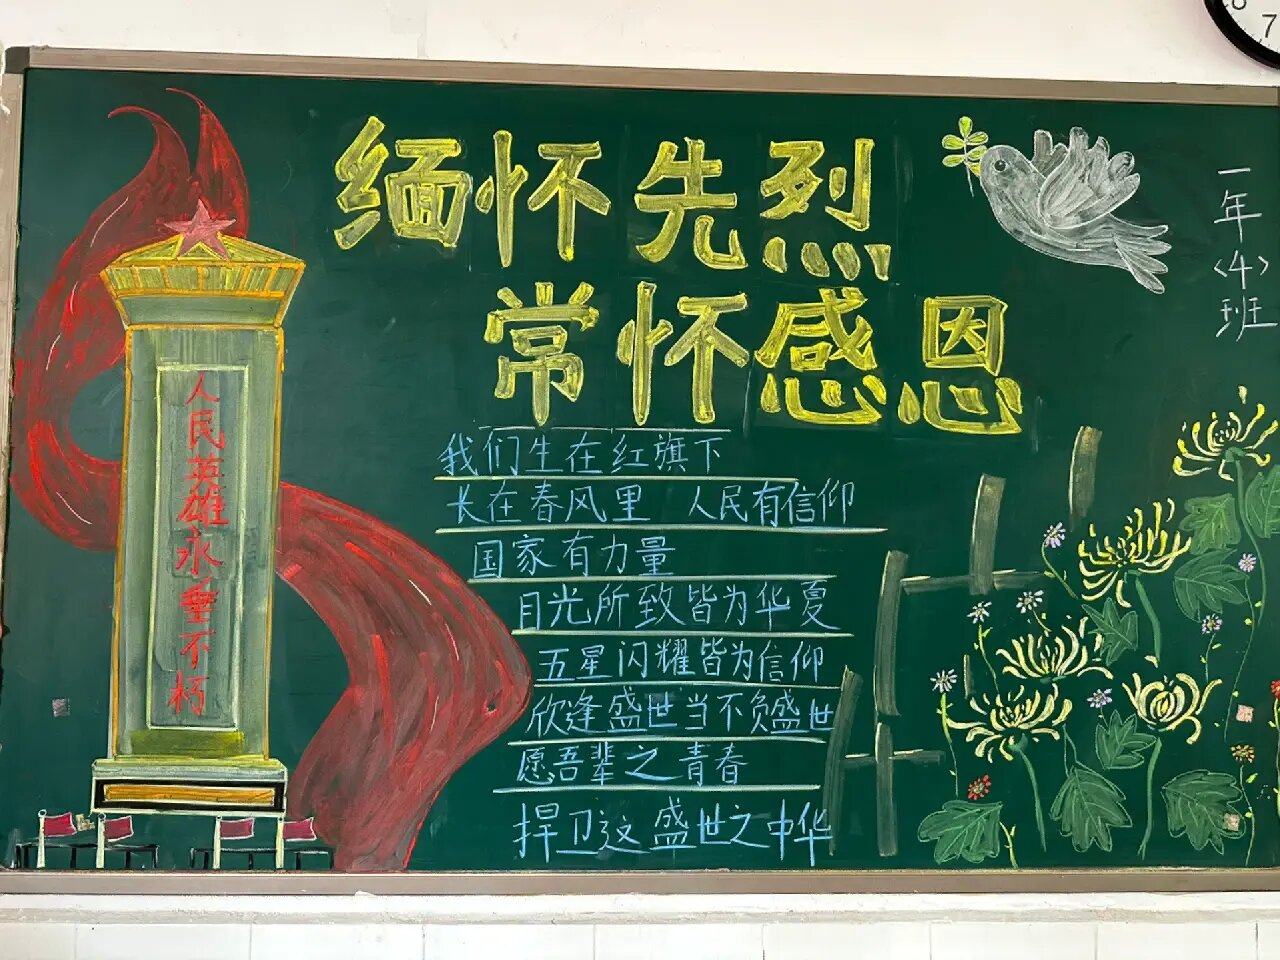 缅怀先烈
常怀感恩
一年<4>班
人民英雄永垂不朽
我们生在红旗下
长在春风里 人民有信仰
国家有力量
目光所致皆为华夏
五星闪耀皆为信仰
欣逢盛世当不负盛世
愿吾辈之青春
捍卫这盛世之中华
7